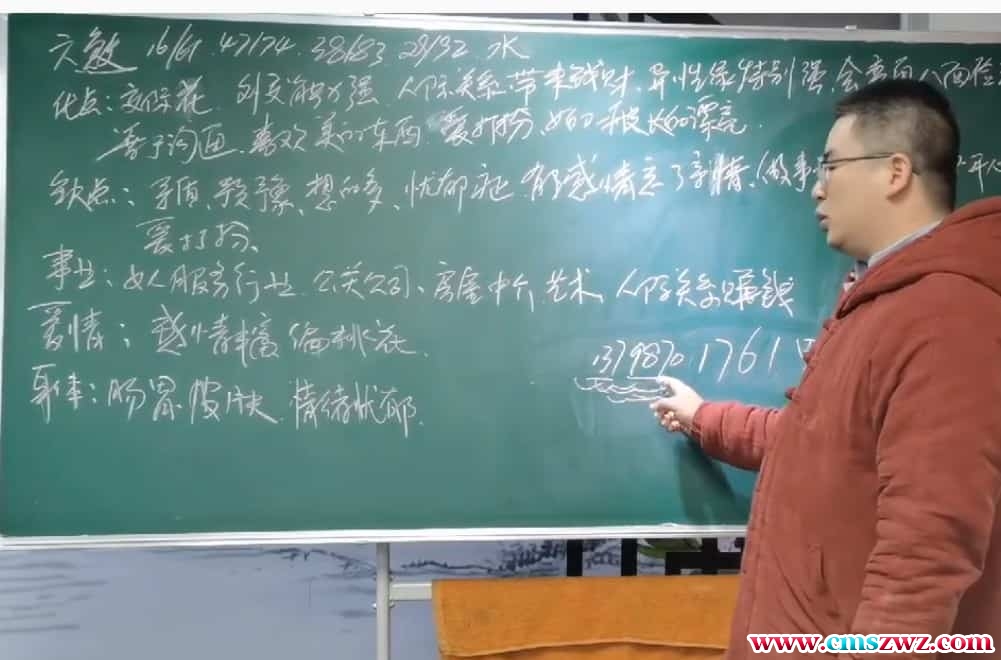 六煞 16/61.47/74.38/83 29/92 水
优点：交际花 外交能力强 人际关系带来钱财.异性缘特别强.会查
善于沟通、喜欢美的东西 爱打扮、 皮 长的漂亮.
缺点：矛盾、犹豫、想的多、忧郁 有感情忘了亲情、做事
爱打扮、
事业：女人服务行业 公关公司、房屋中介 艺术 人际关系赚钱
爱情：感情丰富 偏桃花.
身体：肠胃 皮肤.情绪忧郁.
1379870 1761
www.cmszwz.com